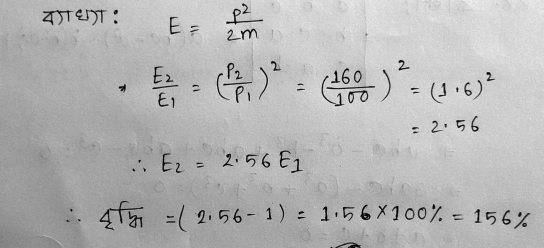 ব্যাখ্যা : E = p²/2m
* E₂/E₁ = (P₂/P₁)² = (160/100)² = (1.6)²
= 2.56
∴ E₂ = 2.56 E₁
∴ বৃদ্ধি = ( 2.56 - 1 ) = 1.56 × 100% = 156%